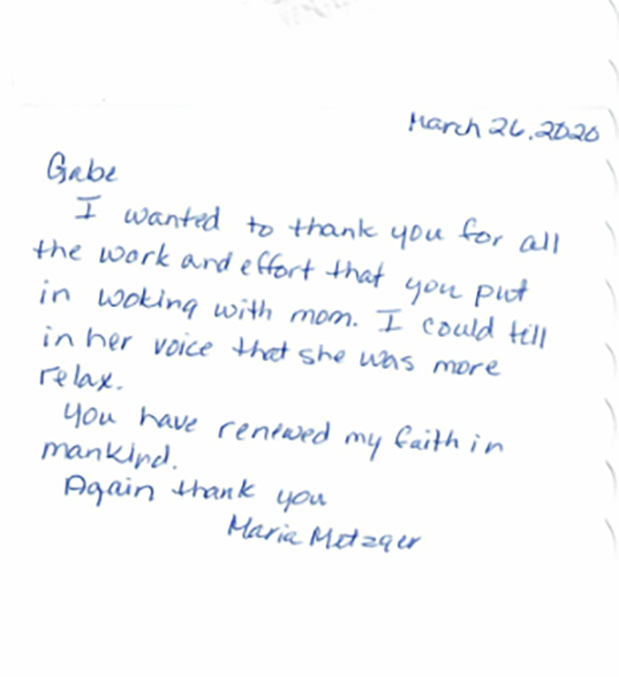 March 26, 2020
Gabe
I wanted to thank you for all
the work and effort that you put
in woking with mom. I could tell
in her voice that she was more
relax.
You have renewed my faith in
mankind.
Again thank you
Maria Metzger